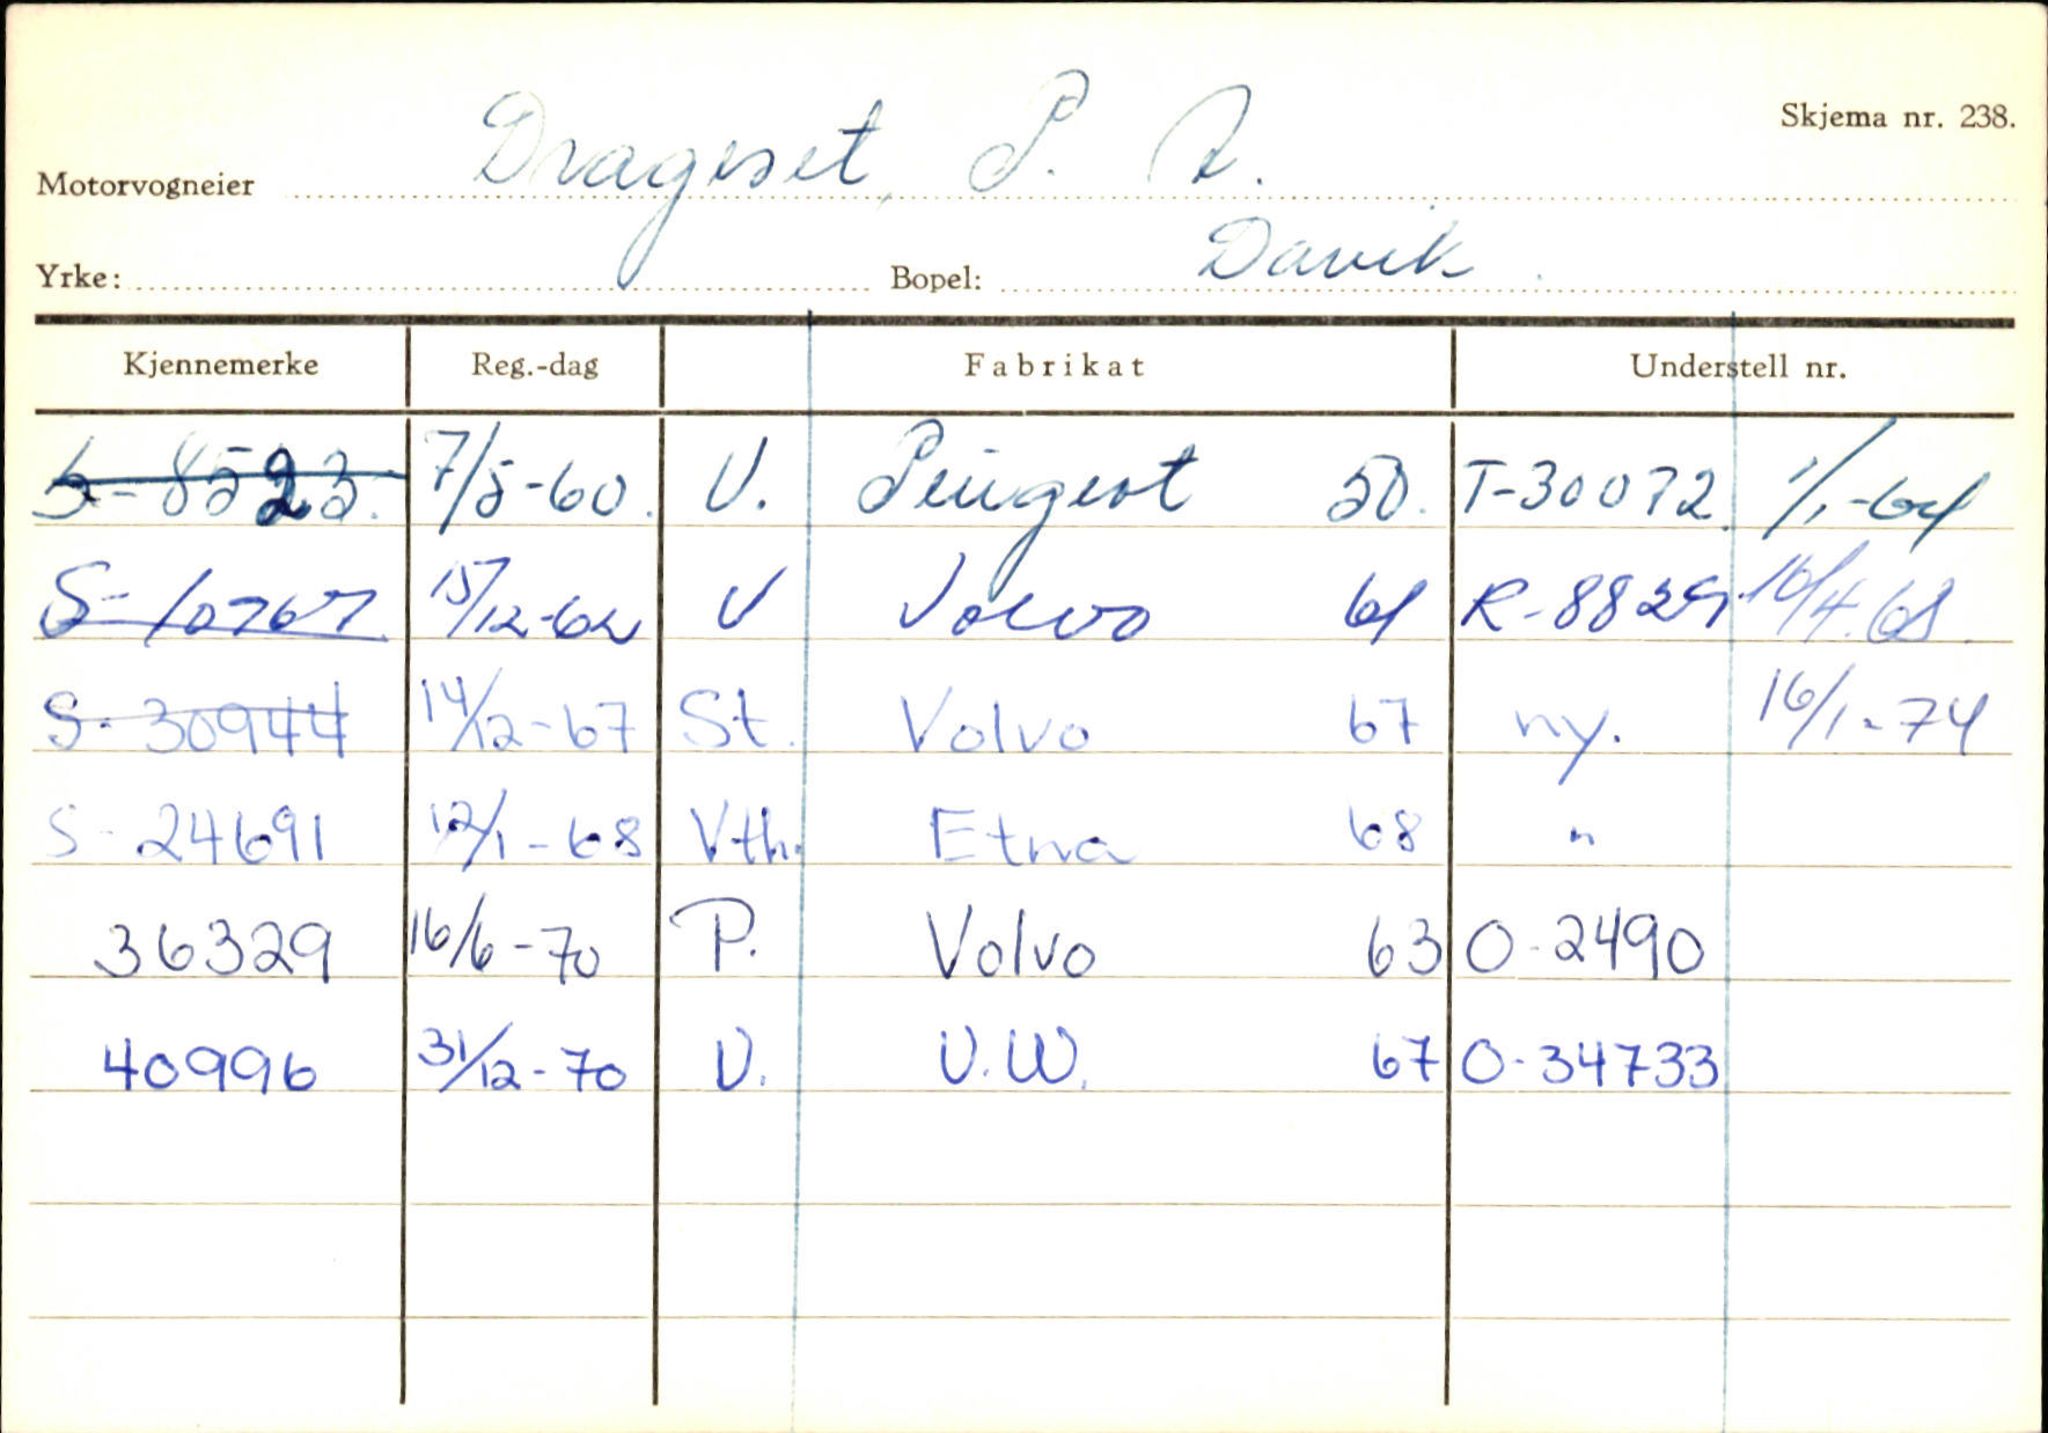 Skjema nr. 238.
Motorvogneier Drageset, P. A.
Yrke: Bopel: Davik
Kjennemerke Reg.-dag Fabrikat Understell nr.
S-8523. 7/5-60. V. Peugeot 50. T-30072. 1/1-64
S-10767 15/12-62 V Volvo 61 R-8829 16/4.68.
S-30944 14/12-67 St. Volvo 67 ny. 16/1-74
S-24691 12/1-68 Vth. Etna 68 "
36329 16/6-70 P. Volvo 63 O-2490
40996 31/12-70 V. V.W. 67 O-34733